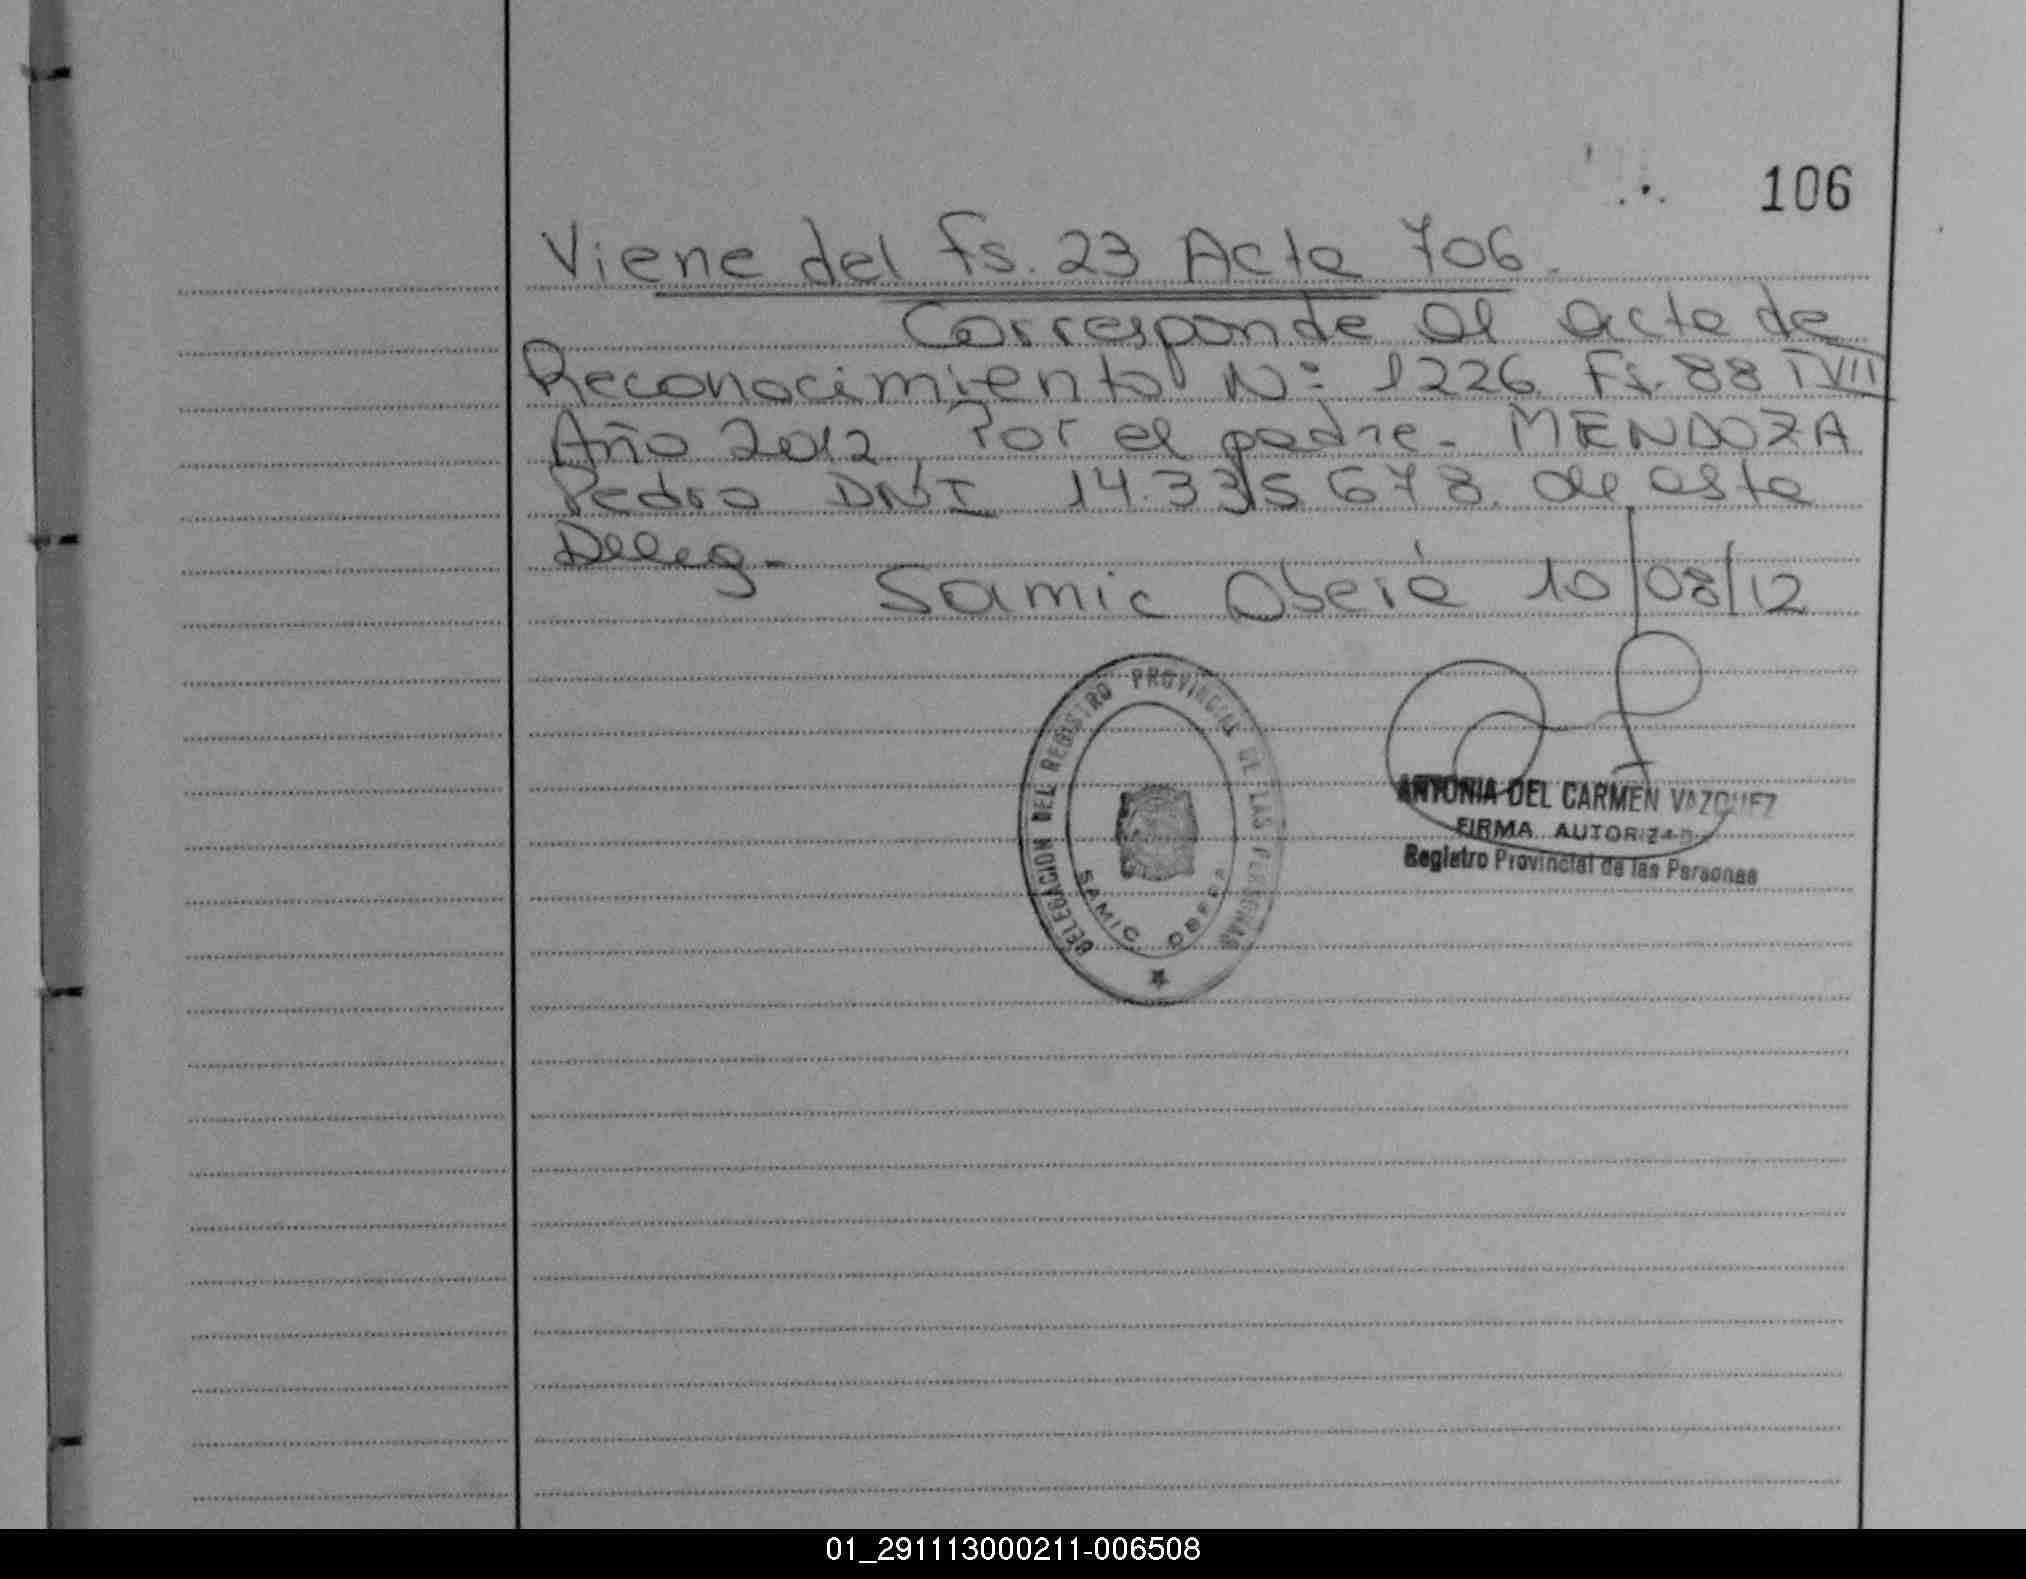 106
Viene del Fs. 23 Acta 706.
Corresponde al acta de
Reconocimiento N: 1226. Fs. 88 TVII
Año 2012 Por el padre - MENDOZA
Pedro DNI 14.335.678. de esta
Deleg-
Samic Oberá 10/08/12
DELEGACION DEL REGISTRO PROVINCIAL DE LAS PERSONAS
SAMIC OBERA
ANTONIA DEL CARMEN VAZQUEZ
FIRMA AUTORIZAD
Registro Provincial de las Personas
01_291113000211-006508